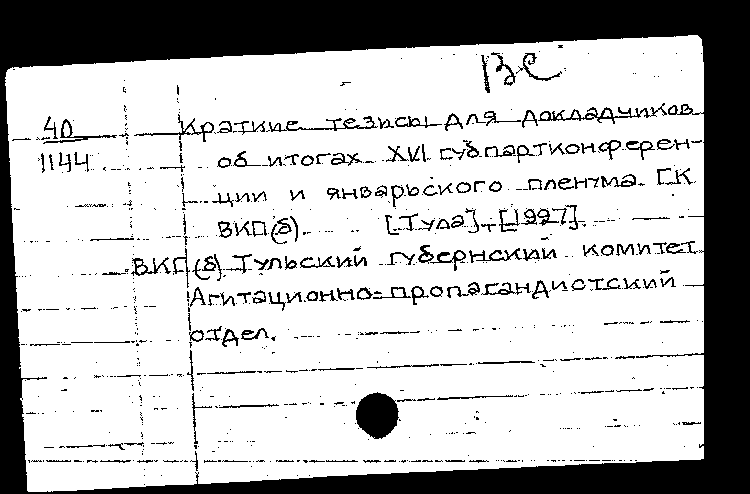 ВС
40
1144
Краткие тезисы для докладчиков
об итогах XVI губпартконферен-
ции и январьского пленума ГК
ВКП(б). [Тула], [1927].
ВКП(б) Тульский губернский комитет
Агитационно-пропагандистский
отдел.